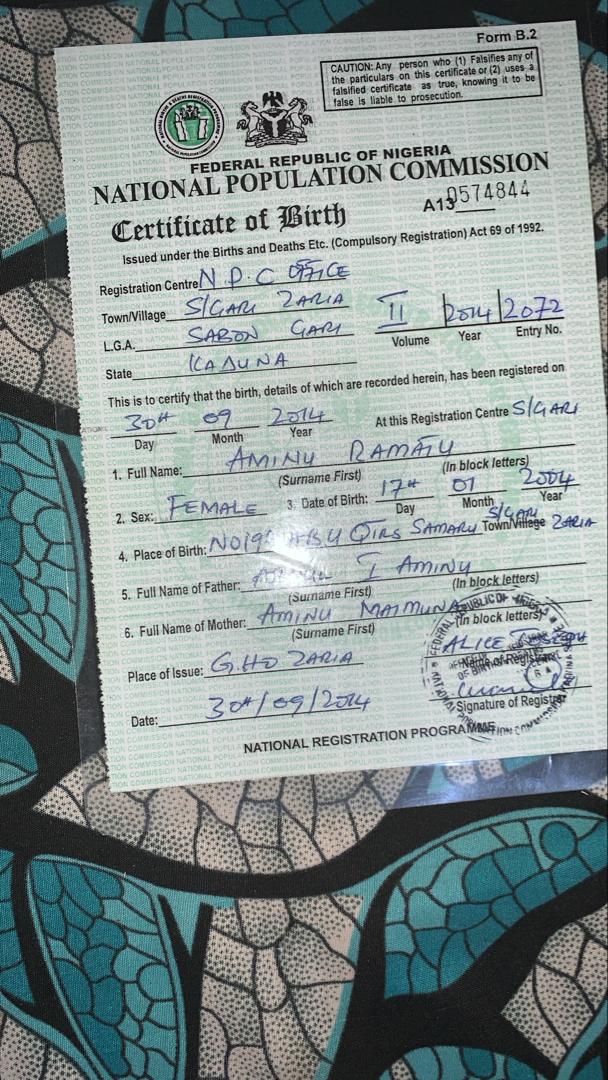 Form B.2
CAUTION: Any person who (1) Falsifies any of
the particulars on this certificate or (2) uses a
falsified certificate as true, knowing it to be
false is liable to prosecution.
FEDERAL REPUBLIC OF NIGERIA
NATIONAL POPULATION COMMISSION
Certificate of Birth A13 0574844
Issued under the Births and Deaths Etc. (Compulsory Registration) Act 69 of 1992.
Registration Centre N.P.C OFFICE
Town/Village S/GARI ZARIA
L.G.A. SABON GARI II 2014 2072
Volume Year Entry No.
State KADUNA
This is to certify that the birth, details of which are recorded herein, has been registered on
30TH 09 2014 At this Registration Centre S/GARI
Day Month Year
1. Full Name: AMINU RAMATU
(Surname First) (In block letters)
2. Sex: FEMALE 3. Date of Birth: 17TH 01 2004
Day Month Year
4. Place of Birth: QTRS SAMARU S/GARI Town/Village ZARIA
5. Full Name of Father: I AMINU
(Surname First) (In block letters)
6. Full Name of Mother: AMINU MAIMUNA
(Surname First) (In block letters)
ALICE
Place of Issue: G.H.D ZARIA Name of Registrar
Signature of Registrar
Date: 30TH/09/2014
NATIONAL REGISTRATION PROGRAMME